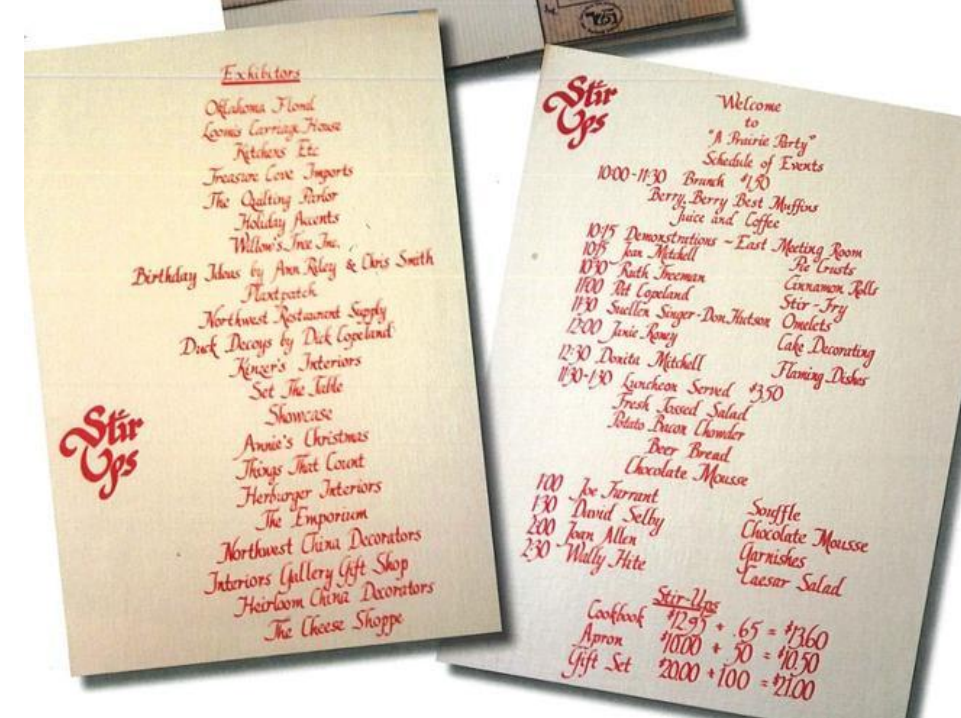 Exhibitors
Oklahoma Floral
Loomis Carriage House
Kitchens Etc
Treasure Cove Imports
The Quilting Parlor
Holiday Accents
Willow's Tree Inc.
Birthday Ideas by Ann Riley & Chris Smith
Plantpatch
Northwest Restaurant Supply
Duck Decoys by Dick Copeland
Kinzer's Interiors
Set The Table
Showcase
Annie's Christmas
Things That Count
Herburger Interiors
The Emporium
Northwest China Decorators
Interiors Gallery Gift Shop
Heirloom China Decorators
The Cheese Shoppe
Stir
Ups
Stir
Ups
Welcome
to
"A Prairie Party"
Schedule of Events
10:00-11:30 Brunch $1.50
Berry, Berry Best Muffins
Juice and Coffee
10:15 Demonstrations - East Meeting Room
10:15 Jean Mitchell Pie Crusts
10:30 Ruth Freeman Cinnamon Rolls
11:00 Pat Copeland Stir-Fry
11:30 Suellen Singer-Don Hutson Omelets
12:00 Janie Roney Cake Decorating
12:30 Donita Mitchell Flaming Dishes
11:30-1:30 Luncheon Served $3.50
Fresh Tossed Salad
Potato Bacon Chowder
Beer Bread
Chocolate Mousse
1:00 Joe Farrant Souffle
1:30 David Selby Chocolate Mousse
2:00 Joan Allen Garnishes
2:30 Wally Hite Caesar Salad
Stir-Ups
Cookbook $12.95 + .65 = $13.60
Apron $10.00 + .50 = $10.50
Gift Set $20.00 + 1.00 = $21.00